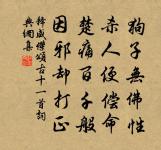 狗子無佛性
殺人便償命
楚痛百千般
因邪却打正
釋咸傑頌古十一首詞
典網集